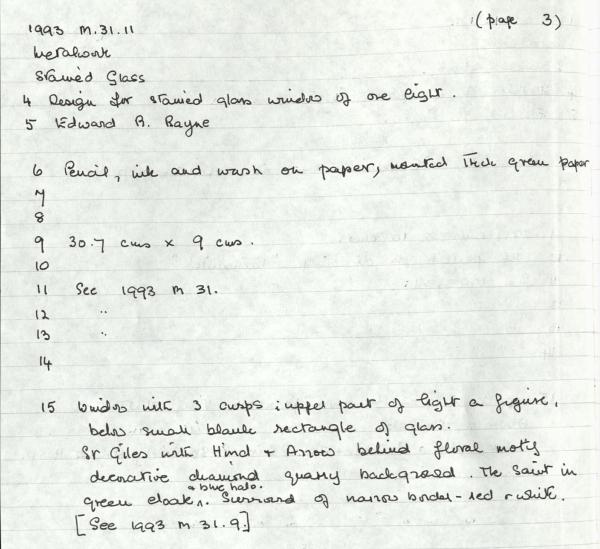 (page 3)
1993 M.31.11
Metalwork
Stained Glass
4 Design for stained glass window of one light.
5 Edward R. Payne
6 Pencil, ink and wash on paper, mounted thick green paper
7
8
9 30.7 cms x 9 cms.
10
11 See 1993 M 31.
12 "
13 "
14
15 Window with 3 cusps in upper part of light a figure,
below small blank rectangle of glass.
St Giles with Hind + Arrow behind floral motif
decorative diamond quarry background. The Saint in
+ blue halo.
green cloak ^. Surround of narrow border - red + white.
[See 1993 M 31.9.]